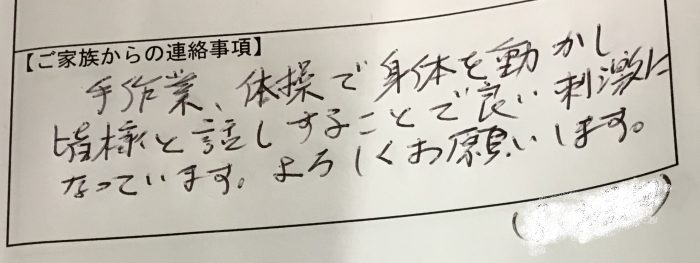 【ご家族からの連絡事項】
手作業、体操で身体を動かし
皆様と話しすることで良い刺激に
なっています。よろしくお願いします。